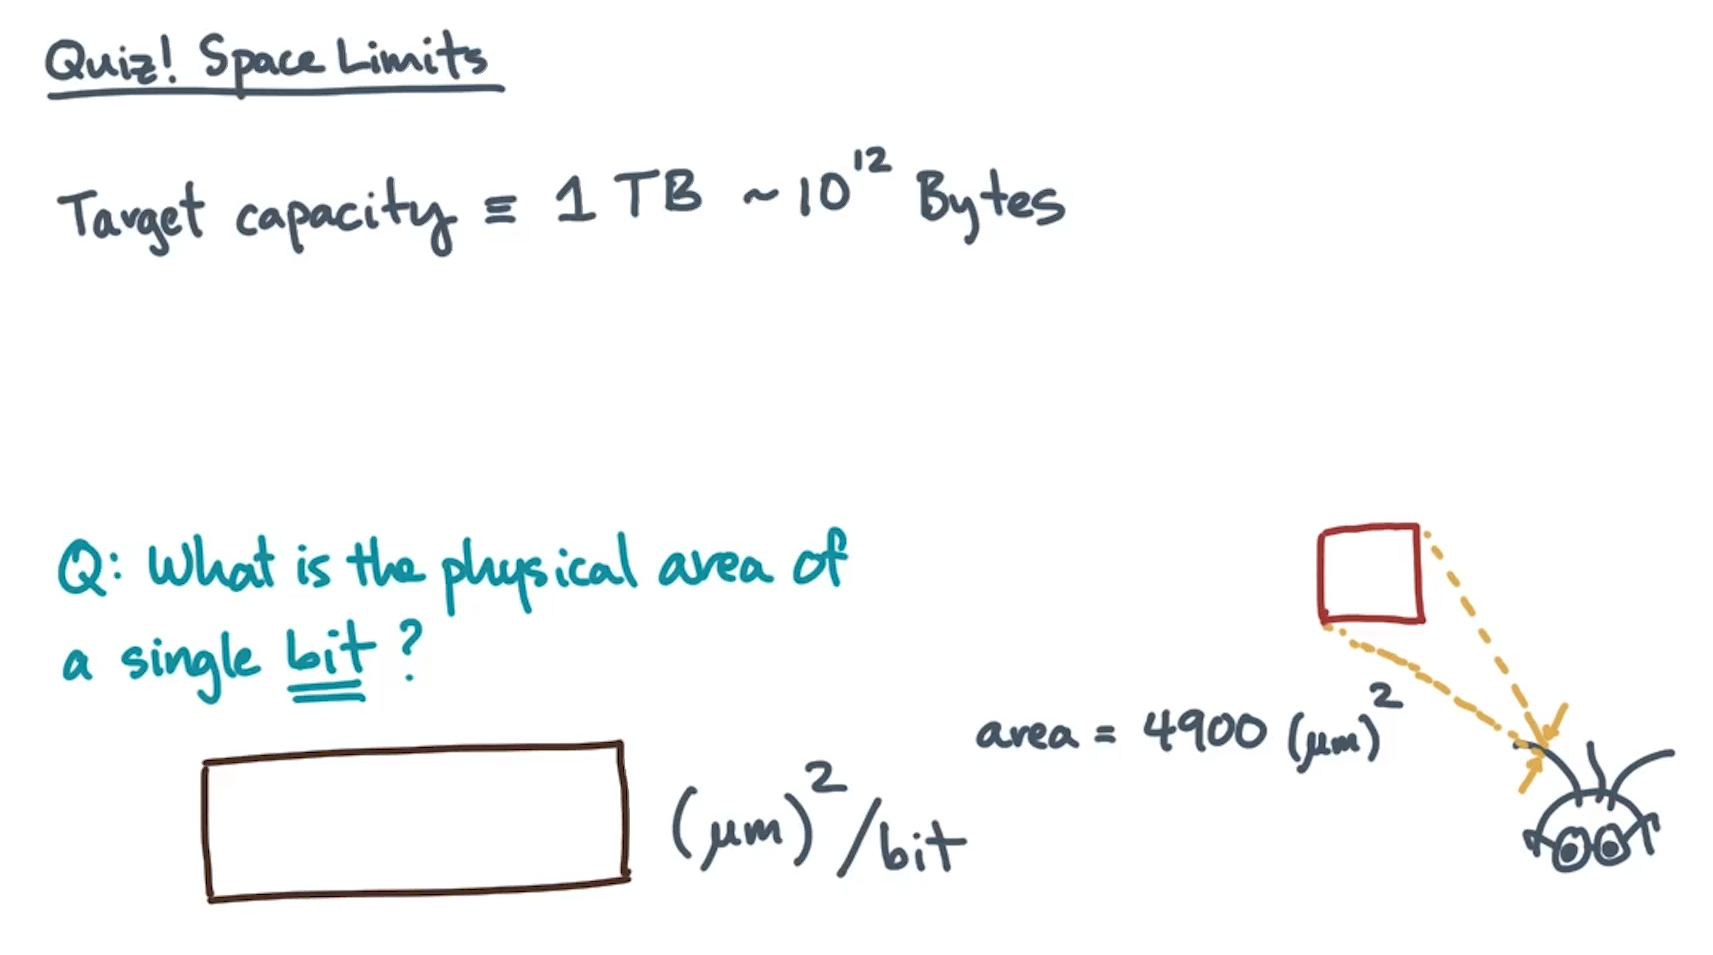 Quiz! Space Limits
Target capacity ≡ 1 TB ~ 10¹² Bytes
Q: What is the physical area of
a single bit?
area = 4900 (μm)²
(μm)²/bit